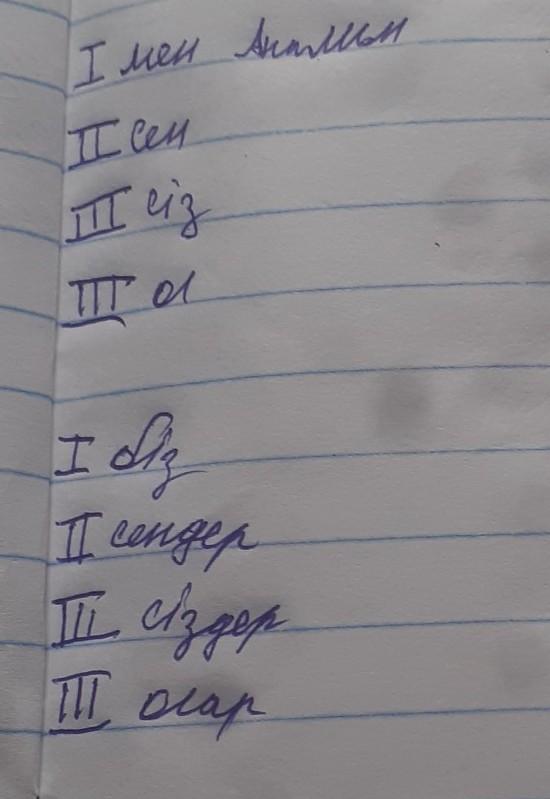 I мен
II сен
III сіз
III ол
I біз
II сендер
III сіздер
III олар